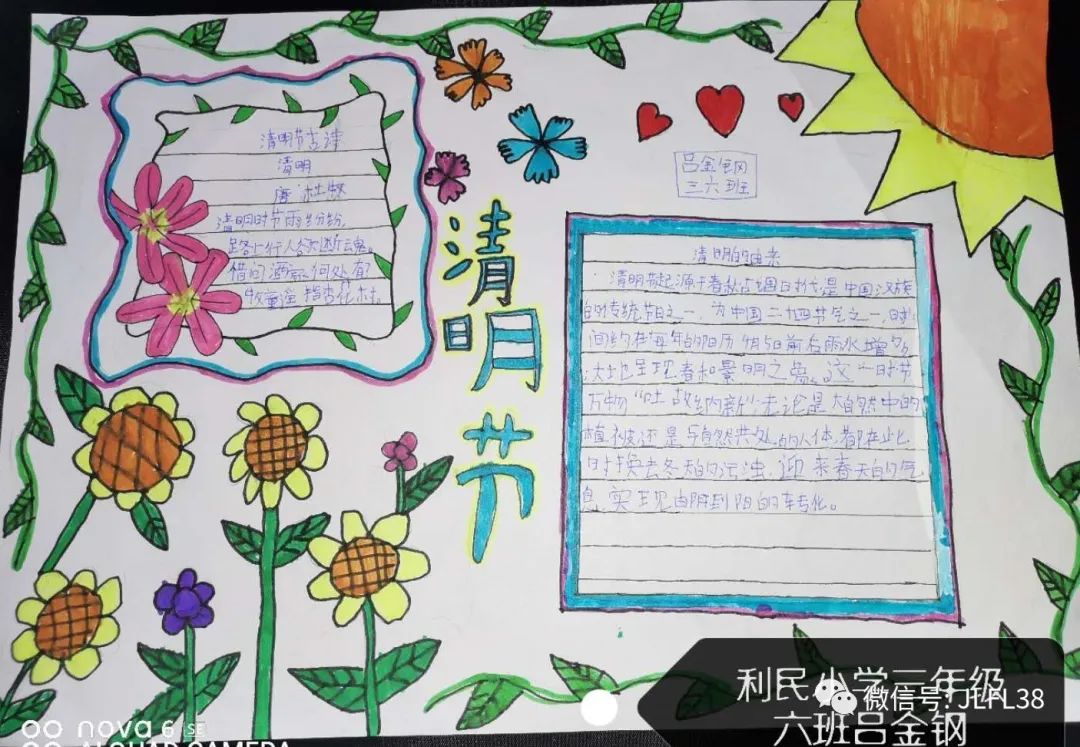 清明节古诗
清明
唐 杜牧
清明时节雨纷纷,
路上行人欲断魂。
借问酒家何处有?
牧童遥指杏花村。
清明节
吕金钢
三六班
清明的由来
清明节起源于春秋占国时代,是中国汉族
的传统节日之一,为中国二十四节气之一,时
间约在每年的阳历4月5日前后雨水增多,
大地呈现春和景明之象。这一时节
万物“吐故纳新”无论是大自然中的
植被还是与自然共处的人体,都在此
时换去冬天的污浊,迎来春天的气
息,实现由阴到阳的转化。
利民小学三年级
六班吕金钢
微信号: JLFL38
nova 6 SE
AI QUAD CAMERA